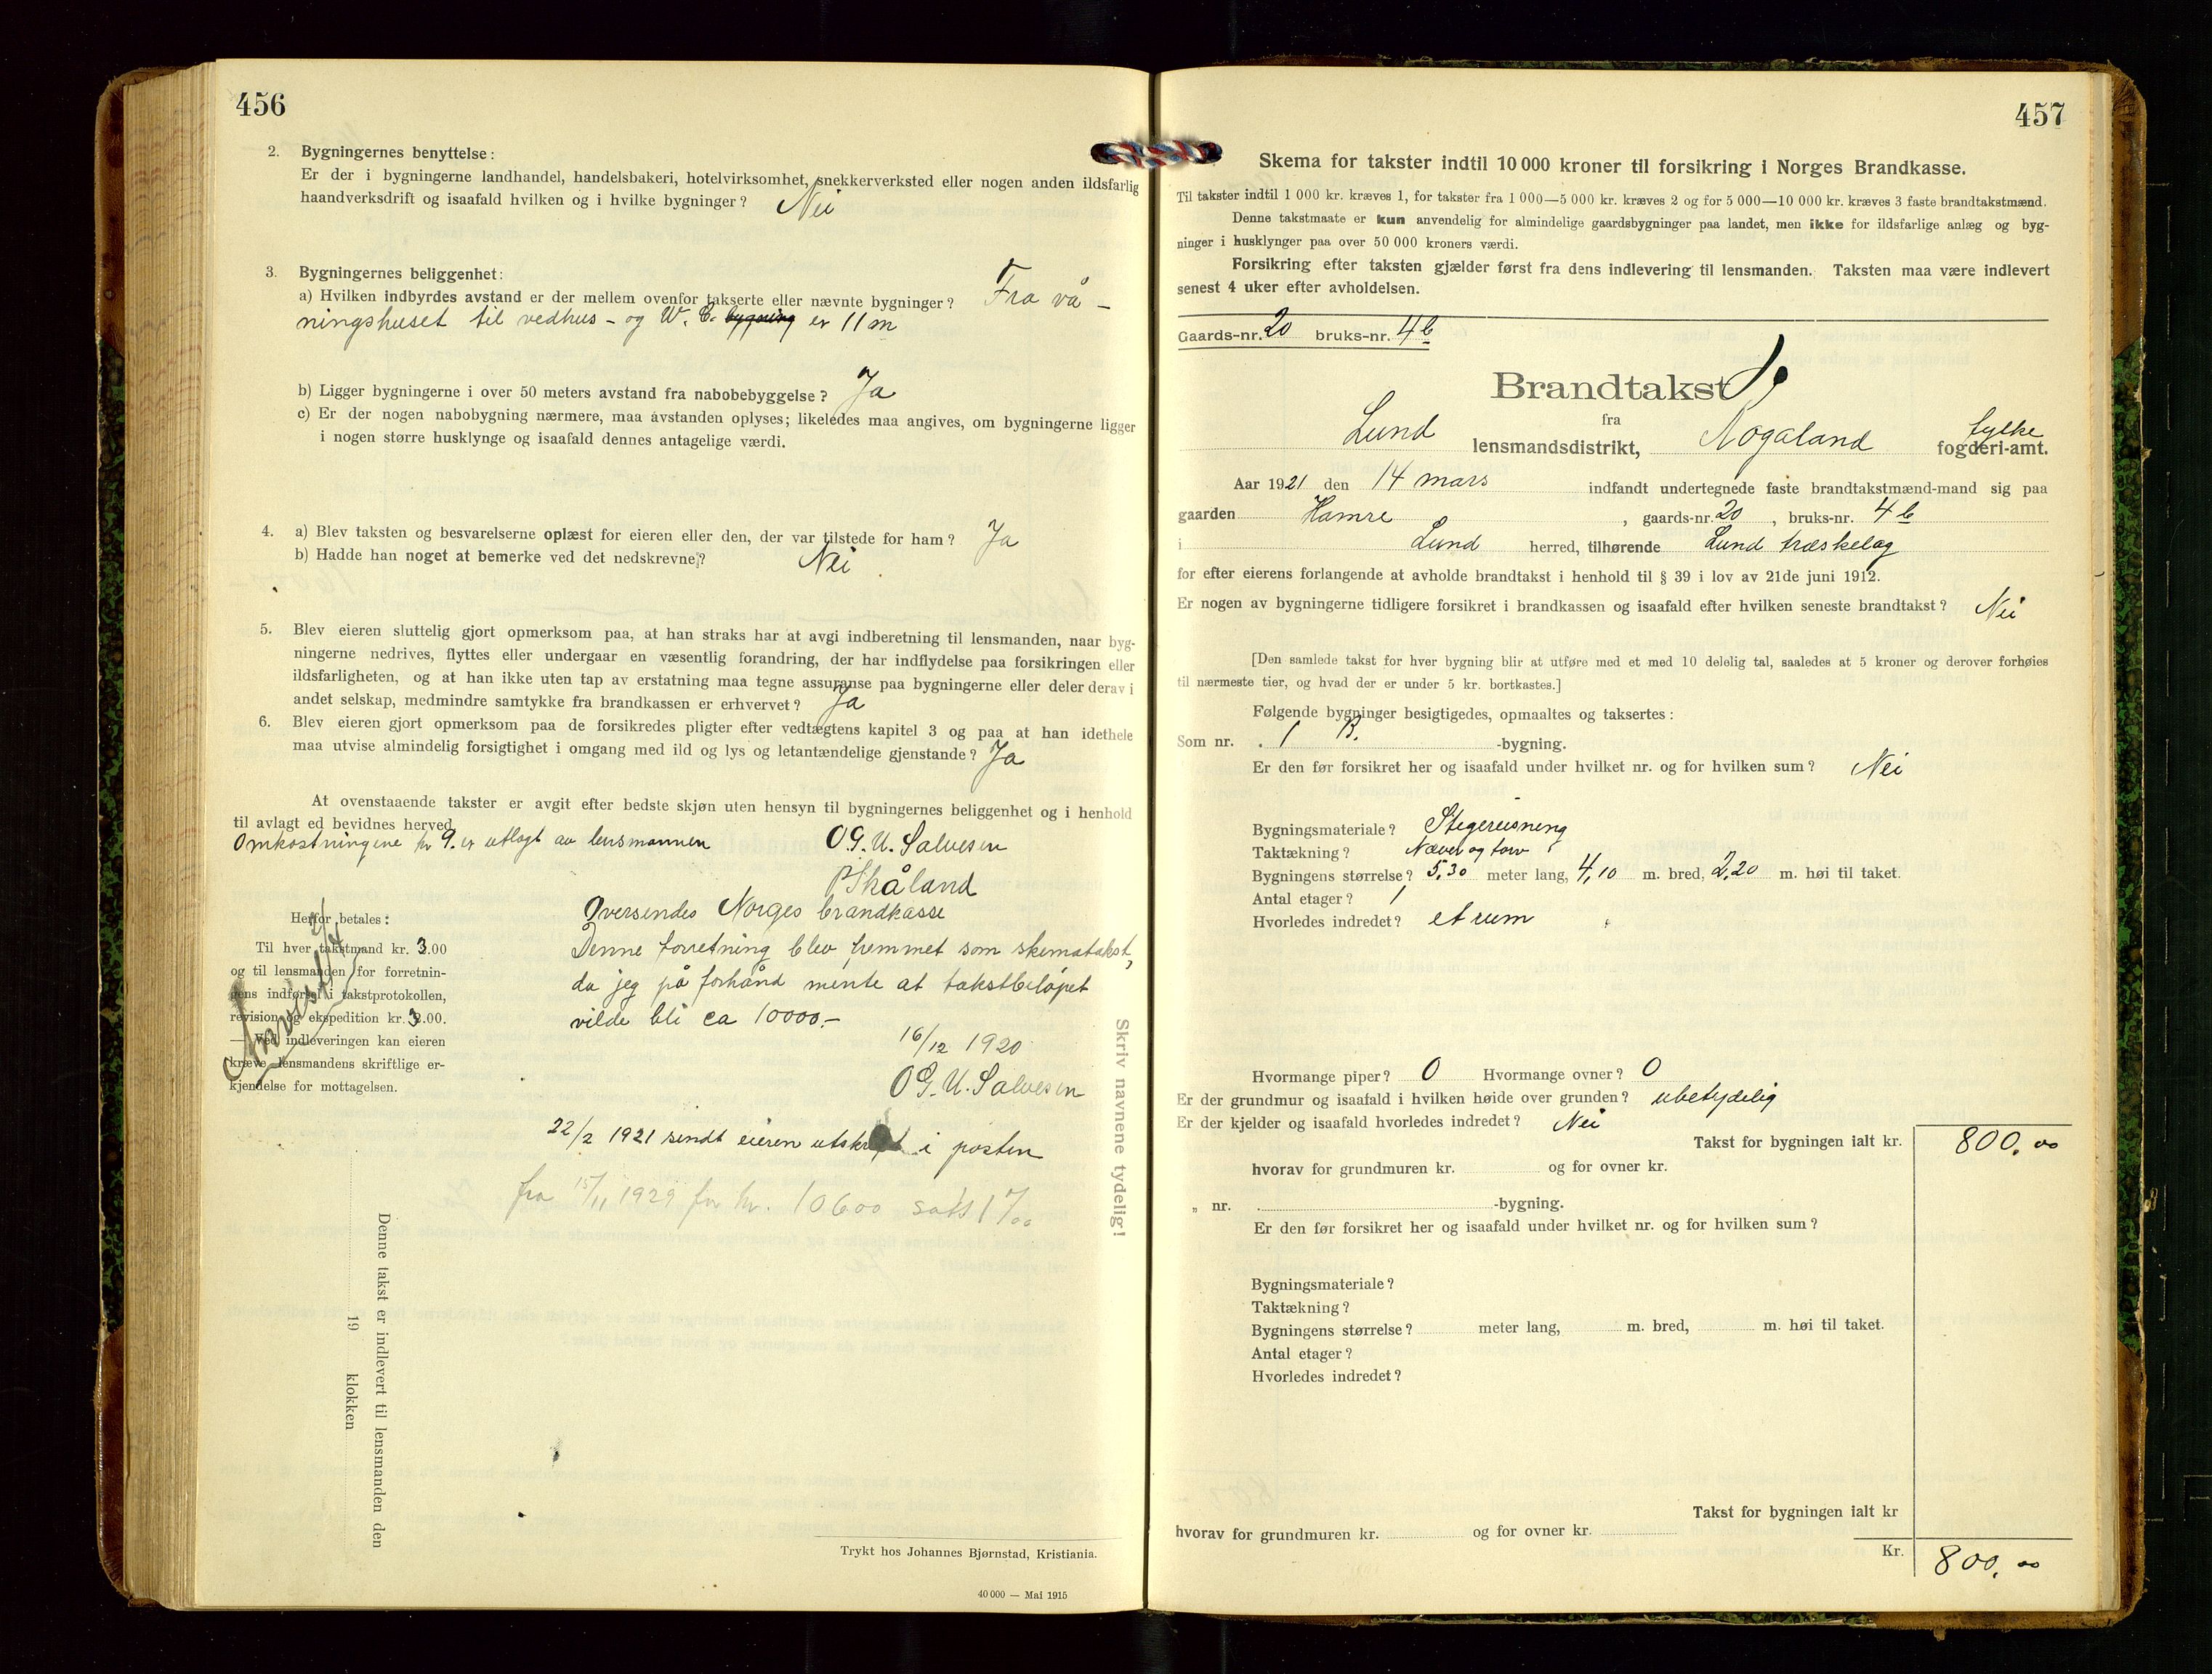 456
2. Bygningernes benyttelse:
Er der i bygningerne landhandel, handelsbakeri, hotelvirksomhet, snekkerverksted eller nogen anden ildsfarlig
haandverksdrift og isaafald hvilken og i hvilke bygninger? Nei
3. Bygningernes beliggenhet:
a) Hvilken indbyrdes avstand er der mellem ovenfor takserte eller nævnte bygninger? Fra vå-
ningshuset til vedhus- og W. C. bygning er 11 m
b) Ligger bygningerne i over 50 meters avstand fra nabobebyggelse? Ja
c) Er der nogen nabobygning nærmere, maa avstanden oplyses; likeledes maa angives, om bygningerne ligger
i nogen større husklynge og isaafald dennes antagelige værdi.
4. a) Blev taksten og besvarelserne oplæst for eieren eller den, der var tilstede for ham? Ja
b) Hadde han noget at bemerke ved det nedskrevne? Nei
5. Blev eieren sluttelig gjort opmerksom paa, at han straks har at avgi indberetning til lensmanden, naar byg-
ningerne nedrives, flyttes eller undergaar en væsentlig forandring, der har indflydelse paa forsikringen eller
ildsfarligheten, og at han ikke uten tap av erstatning maa tegne assuranse paa bygningerne eller deler derav i
andet selskap, medmindre samtykke fra brandkassen er erhvervet? Ja
6. Blev eieren gjort opmerksom paa de forsikredes pligter efter vedtægtens kapitel 3 og paa at han idethele
maa utvise almindelig forsigtighet i omgang med ild og lys og letantændelige gjenstande? Ja
At ovenstaaende takster er avgit efter bedste skjøn uten hensyn til bygningernes beliggenhet og i henhold
til avlagt ed bevidnes herved
Omkostningene kr 9. er utlagt av lensmannen O. G. U. Salvesen
P Skåland
Oversendes Norges brandkasse
Denne forretning blev fremmet som skematakst,
da jeg på forhånd mente at takstbeløpet
vilde bli ca 10000.-
16/12 1920
O G. U. Salvesen
Herfor betales:
Til hver takstmand kr. 3.00
og til lensmanden for forretnin-
gens indførsel i takstprotokollen,
revision og ekspedition kr. 3.00.
— Ved indleveringen kan eieren
kræve lensmandens skriftlige er-
kjendelse for mottagelsen.
22/2 1921 sendt eieren utskrift i posten
fra 15/11 1929 for kr. 10600 sats 1 ‰
Skriv navnene tydelig!
Denne takst er indlevert til lensmanden den
19 klokken
Trykt hos Johannes Bjørnstad, Kristiania.
40 000 — Mai 1915
457
Skema for takster indtil 10 000 kroner til forsikring i Norges Brandkasse.
Til takster indtil 1 000 kr. kræves 1, for takster fra 1 000—5 000 kr. kræves 2 og for 5 000—10 000 kr. kræves 3 faste brandtakstmænd.
Denne takstmaate er kun anvendelig for almindelige gaardsbygninger paa landet, men ikke for ildsfarlige anlæg og byg-
ninger i husklynger paa over 50 000 kroners værdi.
Forsikring efter taksten gjælder først fra dens indlevering til lensmanden. Taksten maa være indlevert
senest 4 uker efter avholdelsen.
Gaards-nr. 20 bruks-nr. 4 b
Brandtakst
fra
Lund lensmandsdistrikt, Rogaland fylke fogderi-amt.
Aar 1921 den 14 mars indfandt undertegnede faste brandtakstmænd-mand sig paa
gaarden Hamre, gaards-nr. 20, bruks-nr. 4 b
i Lund herred, tilhørende Lund træskelag
for efter eierens forlangende at avholde brandtakst i henhold til § 39 i lov av 21de juni 1912.
Er nogen av bygningerne tidligere forsikret i brandkassen og isaafald efter hvilken seneste brandtakst? Nei
[Den samlede takst for hver bygning blir at utføre med et med 10 delelig tal, saaledes at 5 kroner og derover forhøies
til nærmeste tier, og hvad der er under 5 kr. bortkastes.]
Følgende bygninger besigtigedes, opmaaltes og taksertes:
Som nr. 1 B. -bygning.
Er den før forsikret her og isaafald under hvilket nr. og for hvilken sum? Nei
Bygningsmateriale? Stegereisning
Taktækning? Næver og torv
Bygningens størrelse? 5,30 meter lang, 4,10 m. bred, 2,20 m. høi til taket.
Antal etager? 1
Hvorledes indredet? et rum
Hvormange piper? 0 Hvormange ovner? 0
Er der grundmur og isaafald i hvilken høide over grunden? ubetydelig
Er der kjelder og isaafald hvorledes indredet? Nei
Takst for bygningen ialt kr. 800.00
hvorav for grundmuren kr. og for ovner kr.
„ nr. -bygning.
Er den før forsikret her og isaafald under hvilket nr. og for hvilken sum?
Bygningsmateriale?
Taktækning?
Bygningens størrelse? meter lang, m. bred, m. høi til taket.
Antal etager?
Hvorledes indredet?
Takst for bygningen ialt kr
hvorav for grundmuren kr. og for ovner kr.
Kr. 800.00